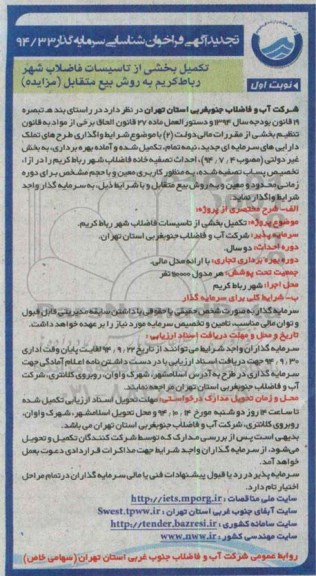 تجدید آگهی فراخوان شناسایی سرمایه گذار ۹۴/۳۳
نوبت اول
تکمیل بخشی از تاسیسات فاضلاب شهر
رباط کریم به روش بیع متقابل (مزایده)
شرکت آب و فاضلاب جنوبغربی استان تهران در نظر دارد در راستای بند هـ تبصره
۱۹ قانون بودجه سال ۱۳۹۴ و دستور العمل ماده ۲۷ قانون الحاق برخی از مواد به قانون
تنظیم بخشی از مقررات مالی دولت (۲) با موضوع شرایط واگذاری طرح های تملک
دارایی های سرمایه ای جدید، نیمه تمام، تکمیل شده و آماده بهره برداری، به بخش
غیر دولتی (مصوب ۹۴،۷،۴)، احداث تصفیه خانه فاضلاب شهر رباط کریم را در ازاء
تخصیص پساب تصفیه شده، به منظور کاربری معین و با حجم مشخص برای دوره
زمانی محدود و معین و به روش بیع متقابل و با شرایط ذیل، به سرمایه گذار واجد
شرایط واگذار نماید.
الف- شرح مختصری از پروژه:
موضوع پروژه: تکمیل بخشی از تاسیسات فاضلاب شهر رباط کریم.
سرمایه پذیر: شرکت آب و فاضلاب جنوبغربی استان تهران.
دوره احداث: دو سال.
دوره بهره برداری تجاری: با ارائه مدل مالی.
جمعیت تحت پوشش: هر مدول نفر
محل اجرا: شهر رباط کریم
ب- شرایط کلی برای سرمایه گذار
سرمایه گذار به صورت شخص حقیقی یا حقوقی با داشتن سابقه مدیریتی قابل قبول
و توان مالی مناسب، تامین و تخصیص سرمایه مورد نیاز را بر عهده خواهد داشت.
تاریخ و محل و مهلت دریافت اسناد ارزیابی:
سرمایه گذاران واجد شرایط می توانند از تاریخ ۹۴،۹،۲۲ لغایت پایان وقت اداری
۹۴،۹،۳۰ جهت دریافت اسناد ارزیابی با در دست داشتن نامه اعلام آمادگی جهت
سرمایه گذاری در طرح به آدرس اسلامشهر، شهرک واوان، روبروی کلانتری، شرکت
آب و فاضلاب جنوبغربی استان تهران مراجعه نمایند.
محل و زمان تحویل مدارک درخواستی: مهلت تحویل اسناد ارزیابی تکمیل شده
تا ساعت ۱۴ روز دو شنبه مورخ ۹۴،۱۰،۱۴ و محل تحویل اسلامشهر، شهرک واوان،
روبروی کلانتری، شرکت آب و فاضلاب جنوب غربی استان تهران می باشد.
بدیهی است پس از بررسی مدارک که توسط شرکت کنندگان تکمیل و تحویل
می شود، از سرمایه گذاران واجد شرایط جهت مذاکرات قرارداد دعوت بعمل
خواهد آمد.
سرمایه پذیر در رد یا قبول پیشنهادات فنی یا مالی سرمایه گذاران در تمام مراحل
اختیار تام دارد.
سایت ملی مناقصات : http://iets.mporg.ir
سایت آبفای جنوب غربی استان تهران : Swest.tpww.ir
سایت سامانه کشوری : http://tender.bazresi.ir
سایت مهندسی کشور : www.nww.ir
روابط عمومی شرکت آب و فاضلاب جنوب غربی استان تهران (سهامی خاص)